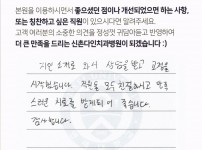 본원을 이용하시면서 좋으셨던 점이나 개선되었으면 하는 사항,
또는 칭찬하고 싶은 직원이 있으시다면 알려주세요.
고객 여러분의 소중한 의견을 정성껏 귀담아듣고 반영하여
더 큰 만족을 드리는 신촌다인치과병원이 되겠습니다 :)
지인 소개로 와서 상담 받고 교정을
시작했습니다. 직원들 모두 친절하시고 만족
스러운 치료를 받게되어 좋습니다.
감사합니다.